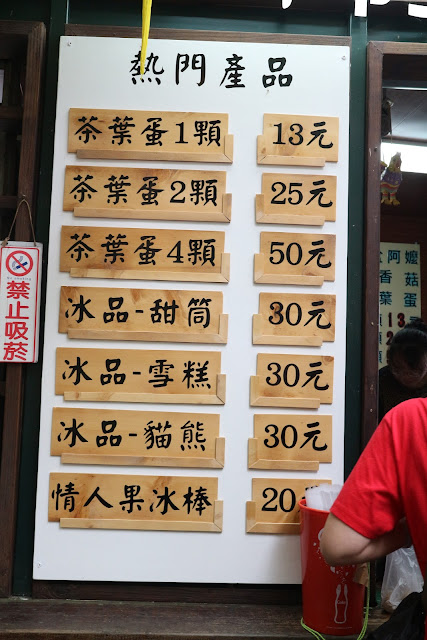 熱門產品
茶葉蛋1顆 13元
茶葉蛋2顆 25元
茶葉蛋4顆 50元
冰品-甜筒 30元
冰品-雪糕 30元
冰品-貓熊 30元
情人果冰棒 20
禁止吸菸
阿嬤
香菇
葉蛋
13